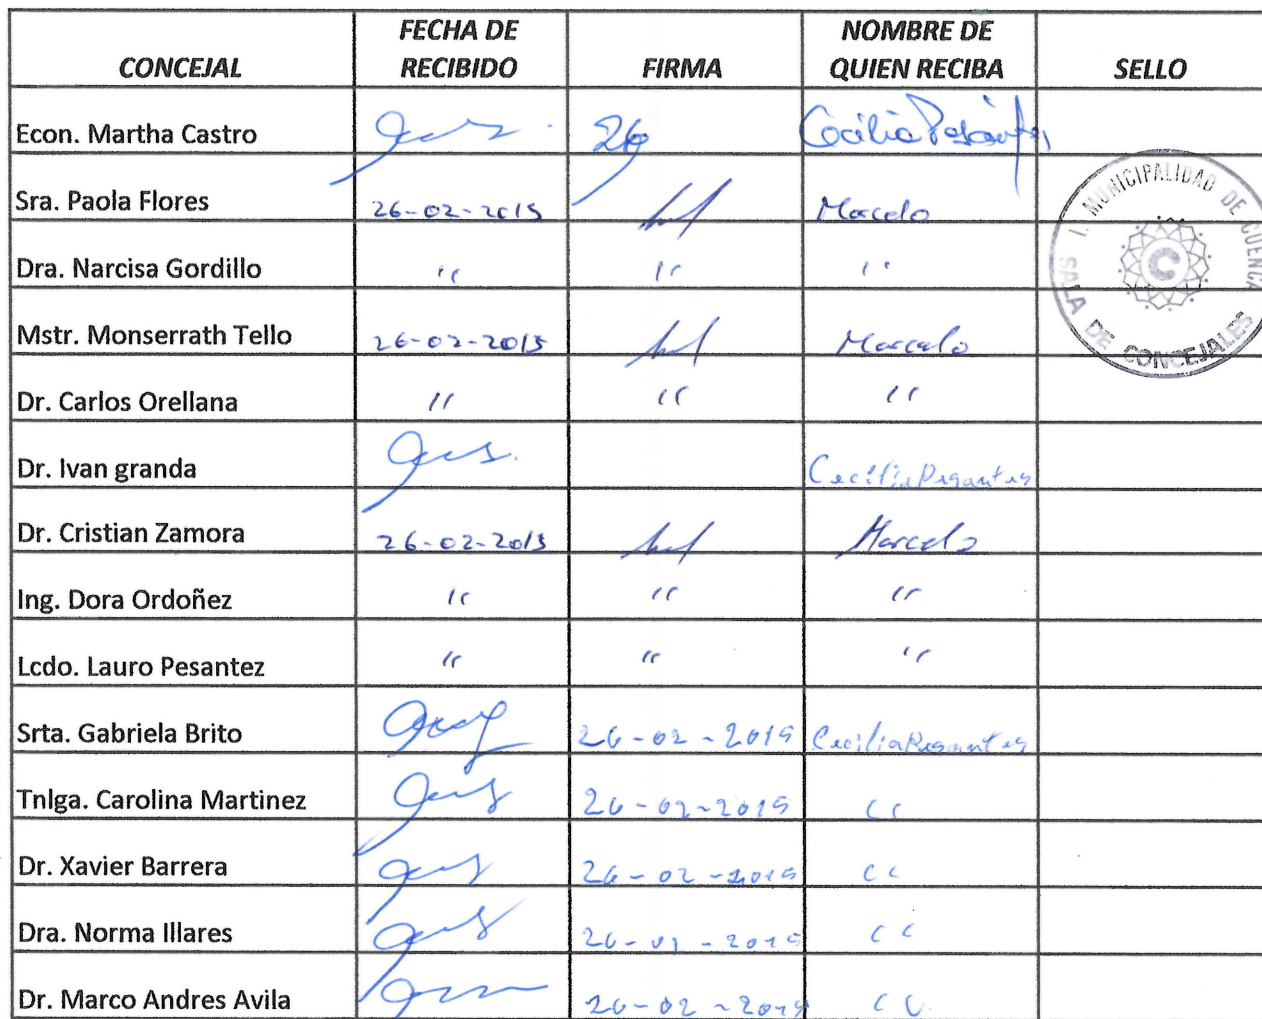 CONCEJAL FECHA DE RECIBIDO FIRMA NOMBRE DE QUIEN RECIBA SELLO
Econ. Martha Castro 26 Cecilia Pesántez
Sra. Paola Flores 26-02-2015 Marcelo
Dra. Narcisa Gordillo " " "
Mstr. Monserrath Tello 26-02-2015 Marcelo
Dr. Carlos Orellana " " "
Dr. Ivan granda Cecilia Pesantes
Dr. Cristian Zamora 26-02-2015 Marcelo
Ing. Dora Ordoñez " " "
Lcdo. Lauro Pesantez " " "
Srta. Gabriela Brito 26-02-2015 Cecilia Pesantes
Tnlga. Carolina Martinez 26-02-2015 "
Dr. Xavier Barrera 26-02-2015 "
Dra. Norma Illares 26-02-2015 "
Dr. Marco Andres Avila 26-02-2015 "
I. MUNICIPALIDAD DE CUENCA
SALA DE CONCEJALES
C